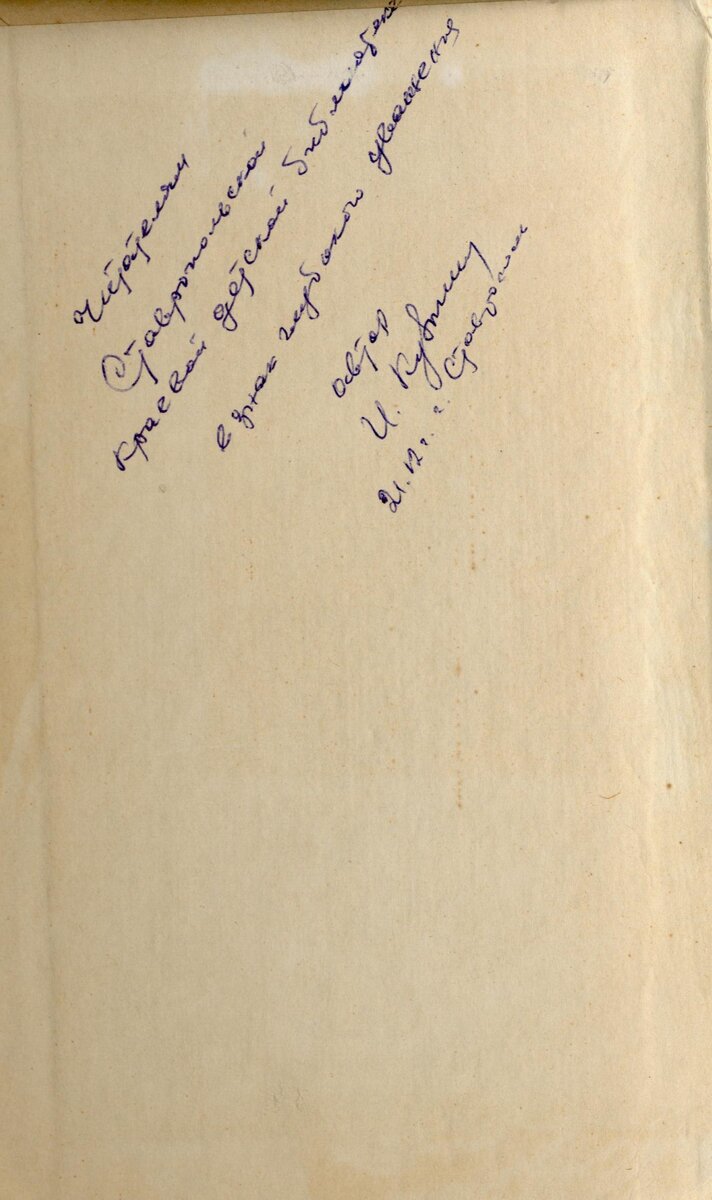 Читателям
Ставропольской
краевой детской библиотеки
в знак глубокого уважения
автор
И.
21.12 г. г. Ставрополь